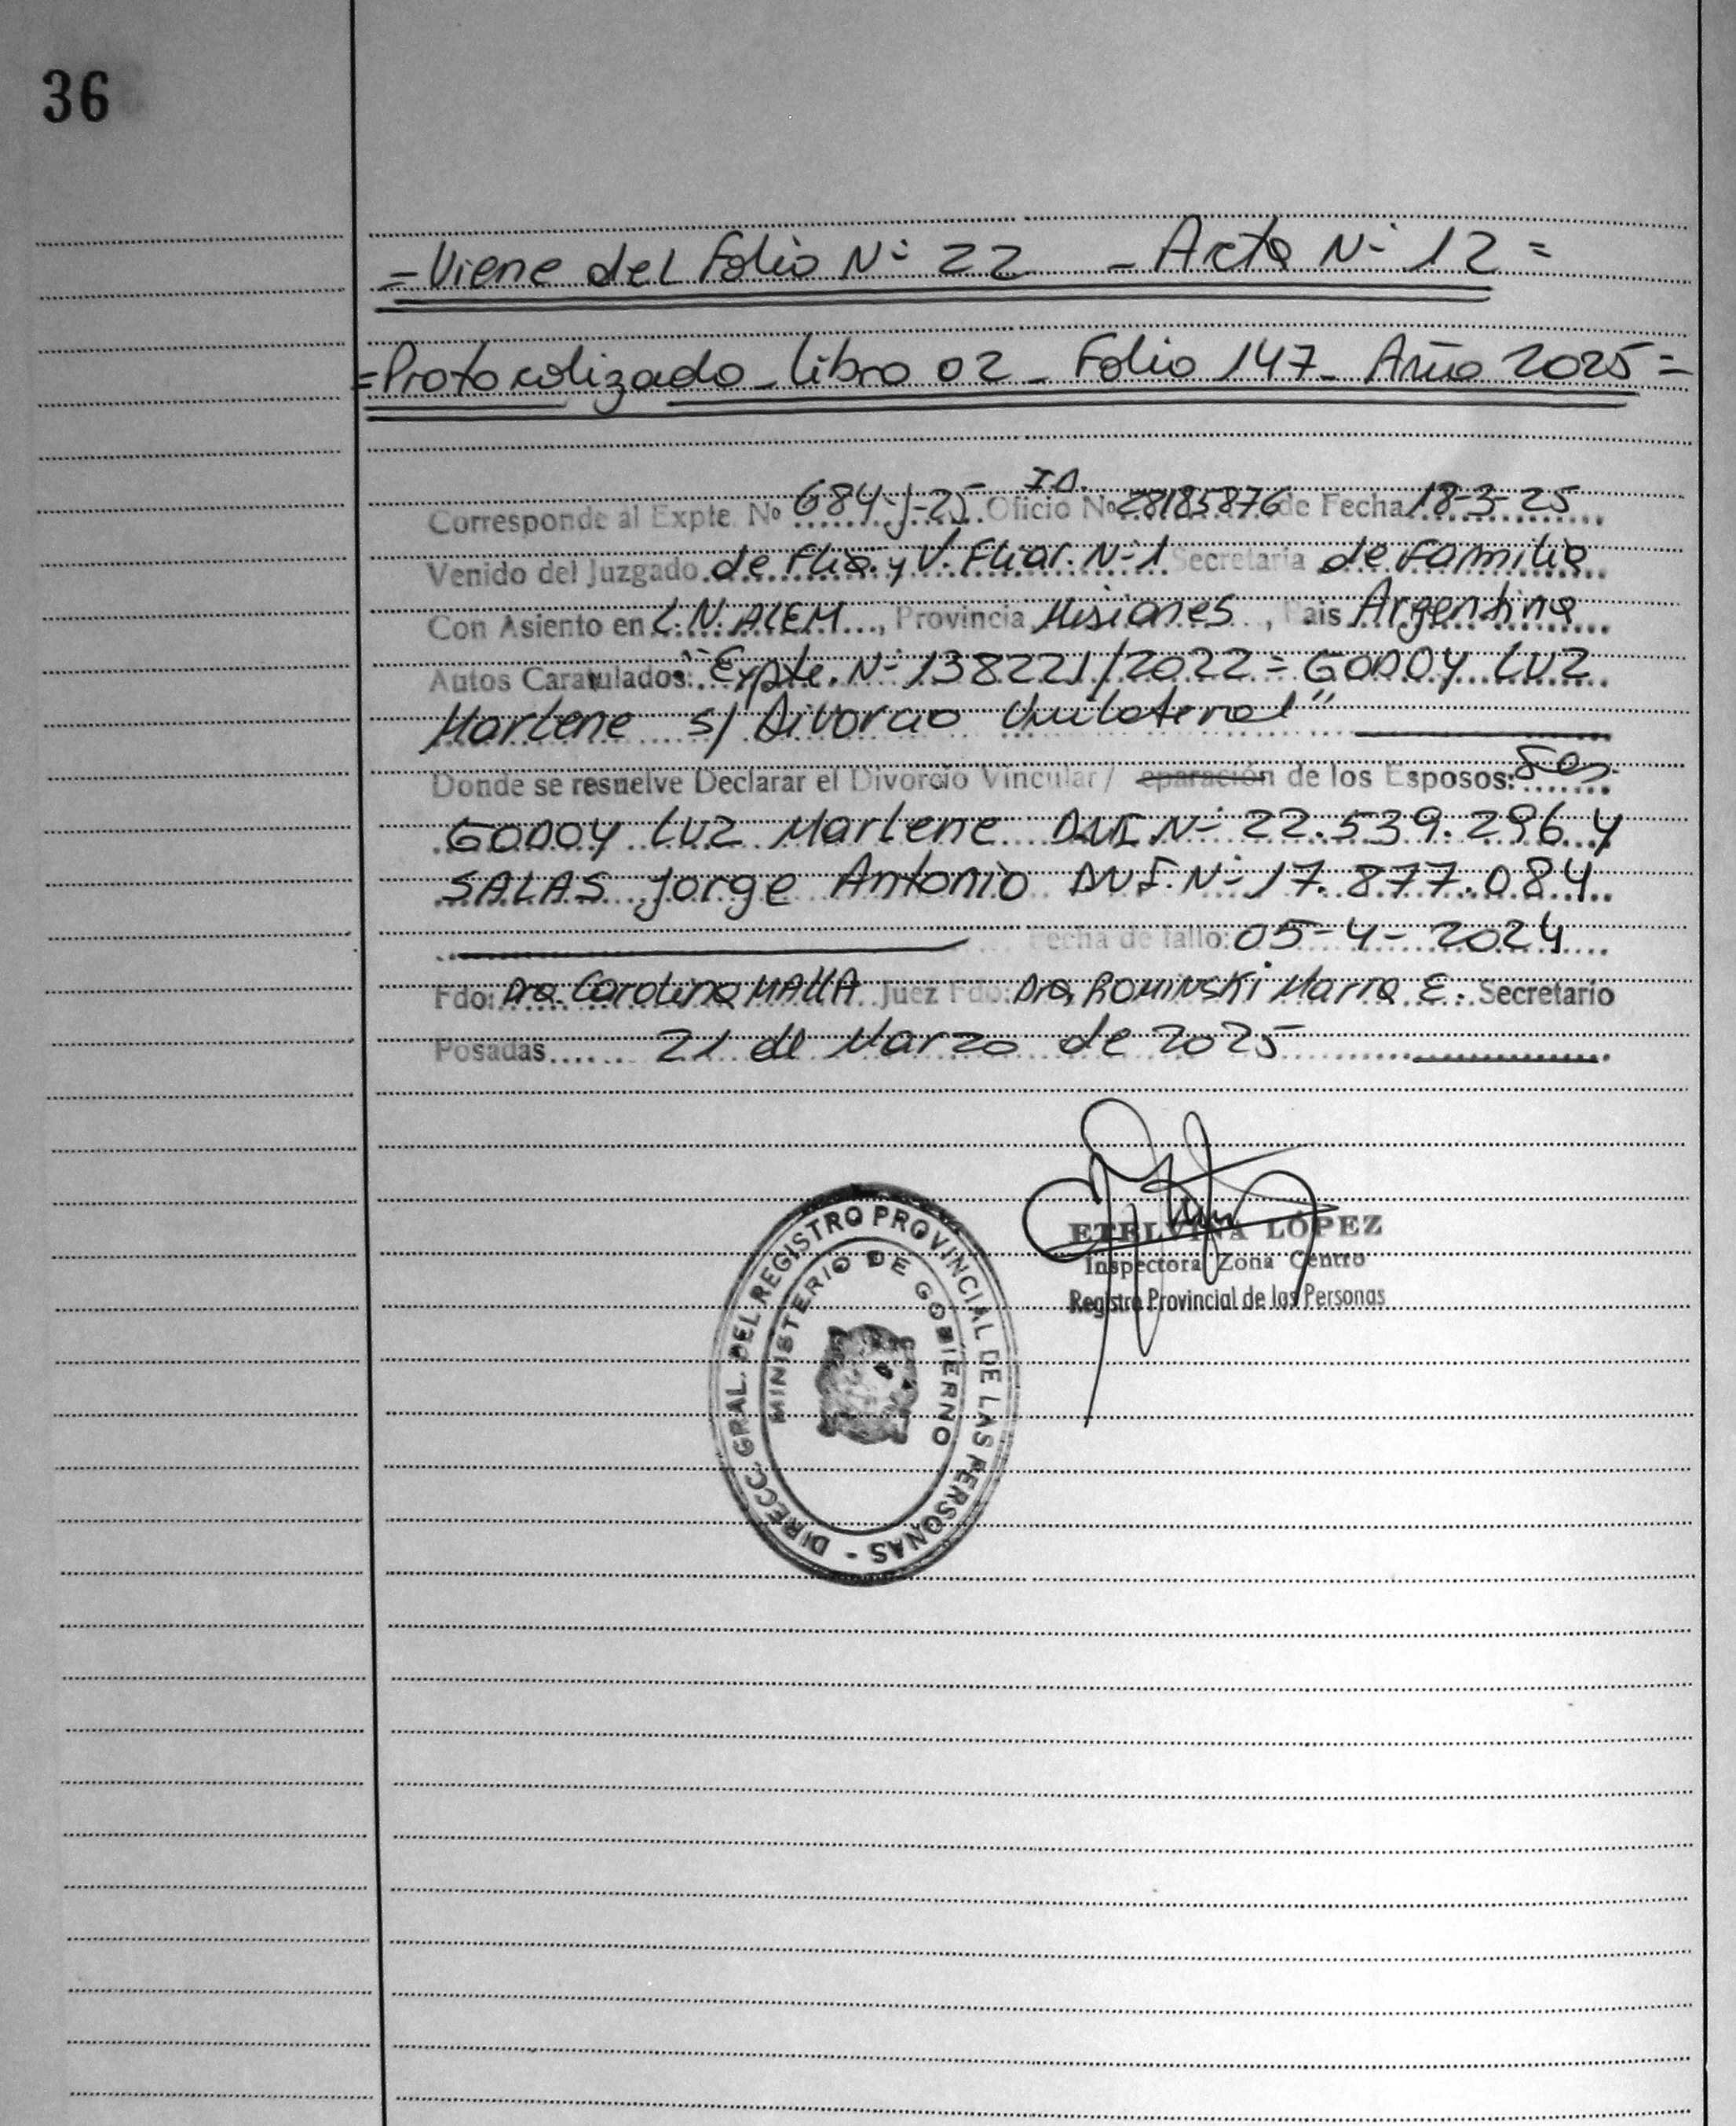 36
= Viene del Folio N° 22 - Acta N° 12 =
= Protocolizado - Libro 02 - Folio 147 - Año 2025 =
Corresponde al Expte. Nº 684-J-25 Oficio I.D. Nº 28185876 de Fecha 18-3-25
Venido del Juzgado de Flia. y V. Fliar. N°1 Secretaria de Familia
Con Asiento en L.N. ALEM, Provincia Misiones, Pais Argentina
Autos Caratulados: "Expte. N° 138221/2022 = GODOY LUZ
Marlene s/ Divorcio Unilateral"
Donde se resuelve Declarar el Divorcio Vincular/ eparación de los Esposos:
GODOY LUZ Marlene DNI N° 22.539.296 y
SALAS Jorge Antonio DNI. N° 17.877.084
Fecha de fallo: 05-4-2024
Fdo: Dra. Carolina Juez Fdo: Dra. ROMINSKI Maria E. Secretario
Posadas 21 de Marzo de 2025
ETELVINA LÓPEZ
Inspectora Zona Centro
Registro Provincial de las Personas
DIRECC. GRAL. DEL REGISTRO PROVINCIAL DE LAS PERSONAS -
MINISTERIO DE GOBIERNO